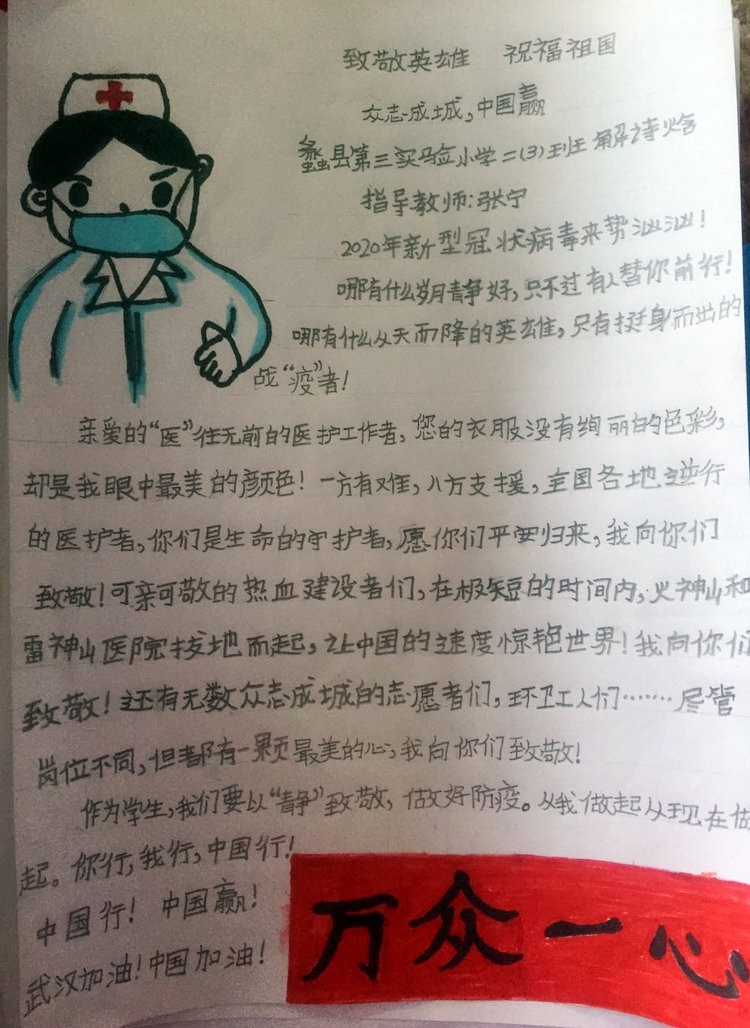 致敬英雄 祝福祖国
众志成城,中国赢
蠡县第三实验小学二(3)班 解诗焓
指导教师:张宁
2020年新型冠状病毒来势汹汹!
哪有什么岁月静好,只不过有人替你前行!
哪有什么从天而降的英雄,只有挺身而出的
战“疫”者!
亲爱的“医”往无前的医护工作者,您的衣服没有绚丽的色彩,
却是我眼中最美的颜色!一方有难,八方支援,全国各地逆行
的医护者,你们是生命的守护者,愿你们平安归来,我向你们
致敬!可亲可敬的热血建设者们,在极短的时间内,火神山和
雷神山医院拔地而起,让中国的速度惊艳世界!我向你们
致敬!还有无数众志成城的志愿者们,环卫工人们……尽管
岗位不同,但都有一颗最美的心,我向你们致敬!
作为学生,我们要以“静”致敬,做好防疫。从我做起从现在做
起。你行,我行,中国行!
中国行!中国赢!
武汉加油!中国加油!
万众一心